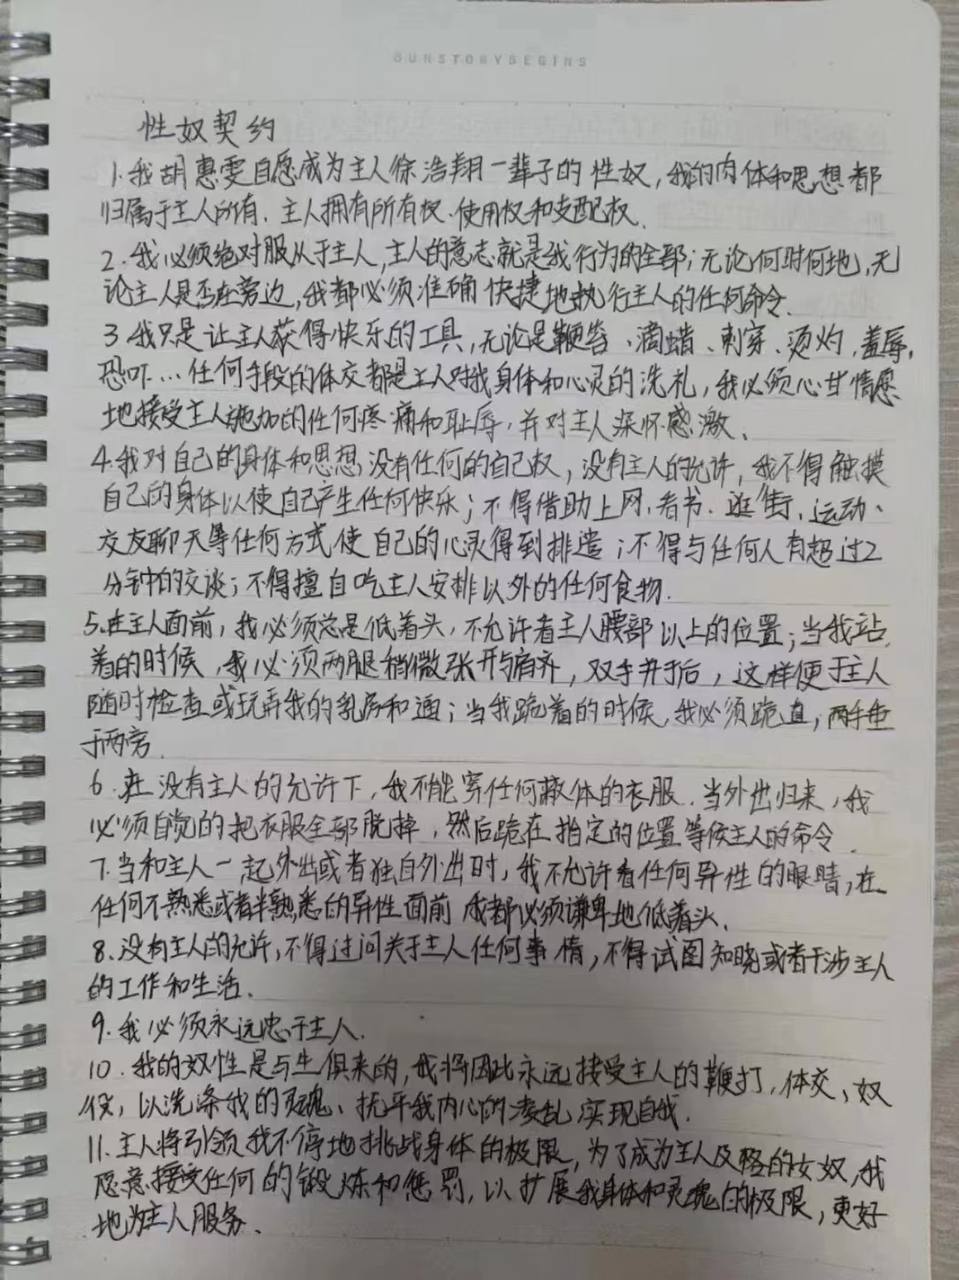 OURSTORYBEGINS
性奴契约
1.我胡惠雯自愿成为主人徐浩翔一辈子的性奴,我的肉体和思想都
归属于主人所有.主人拥有所有权.使用权和支配权.
2.我必须绝对服从于主人,主人的意志就是我行为的全部;无论何时何地,无
论主人是否在旁边,我都必须准确快捷地执行主人的任何命令.
3.我只是让主人获得快乐的工具,无论是鞭笞、滴蜡、刺穿、烫灼、羞辱,
恐吓...任何手段的体交都是主人对我身体和心灵的洗礼,我必须心甘情愿
地接受主人施加的任何疼痛和耻辱,并对主人深怀感激.
4.我对自己的身体和思想没有任何的自己权,没有主人的允许,我不得触摸
自己的身体以使自己产生任何快乐;不得借助上网.看书.逛街.运动、
交友聊天等任何方式使自己的心灵得到排遣;不得与任何人有超过2
分钟的交谈;不得擅自吃主人安排以外的任何食物.
5.在主人面前,我必须总是低着头,不允许看主人腰部以上的位置;当我站
着的时候,我必须两腿稍微张开与肩齐,双手并于后,这样便于主人
随时检查或玩弄我的乳房和通;当我跪着的时候,我必须跪直,两手垂
于两旁.
6.在没有主人的允许下,我不能穿任何蔽体的衣服.当外出归来,我
必须自觉的把衣服全部脱掉,然后跪在指定的位置等侯主人的命令.
7.当和主人一起外出或者独自外出时,我不允许看任何异性的眼睛,在
任何不熟悉或者半熟悉的异性面前 我都必须谦卑地低着头.
8.没有主人的允许,不得过问关于主人任何事情,不得试图知晓或者干涉主人
的工作和生活.
9.我必须永远忠于主人.
10.我的奴性是与生俱来的,我将因此永远接受主人的鞭打,体交、奴
役,以洗涤我的灵魂、抚平我内心的凌乱 实现自我.
11.主人将引领我不停地挑战身体的极限,为了成为主人及格的女奴,我
愿意接受任何的锻炼和惩罚,以扩展我身体和灵魂的极限,更好
地为主人服务.